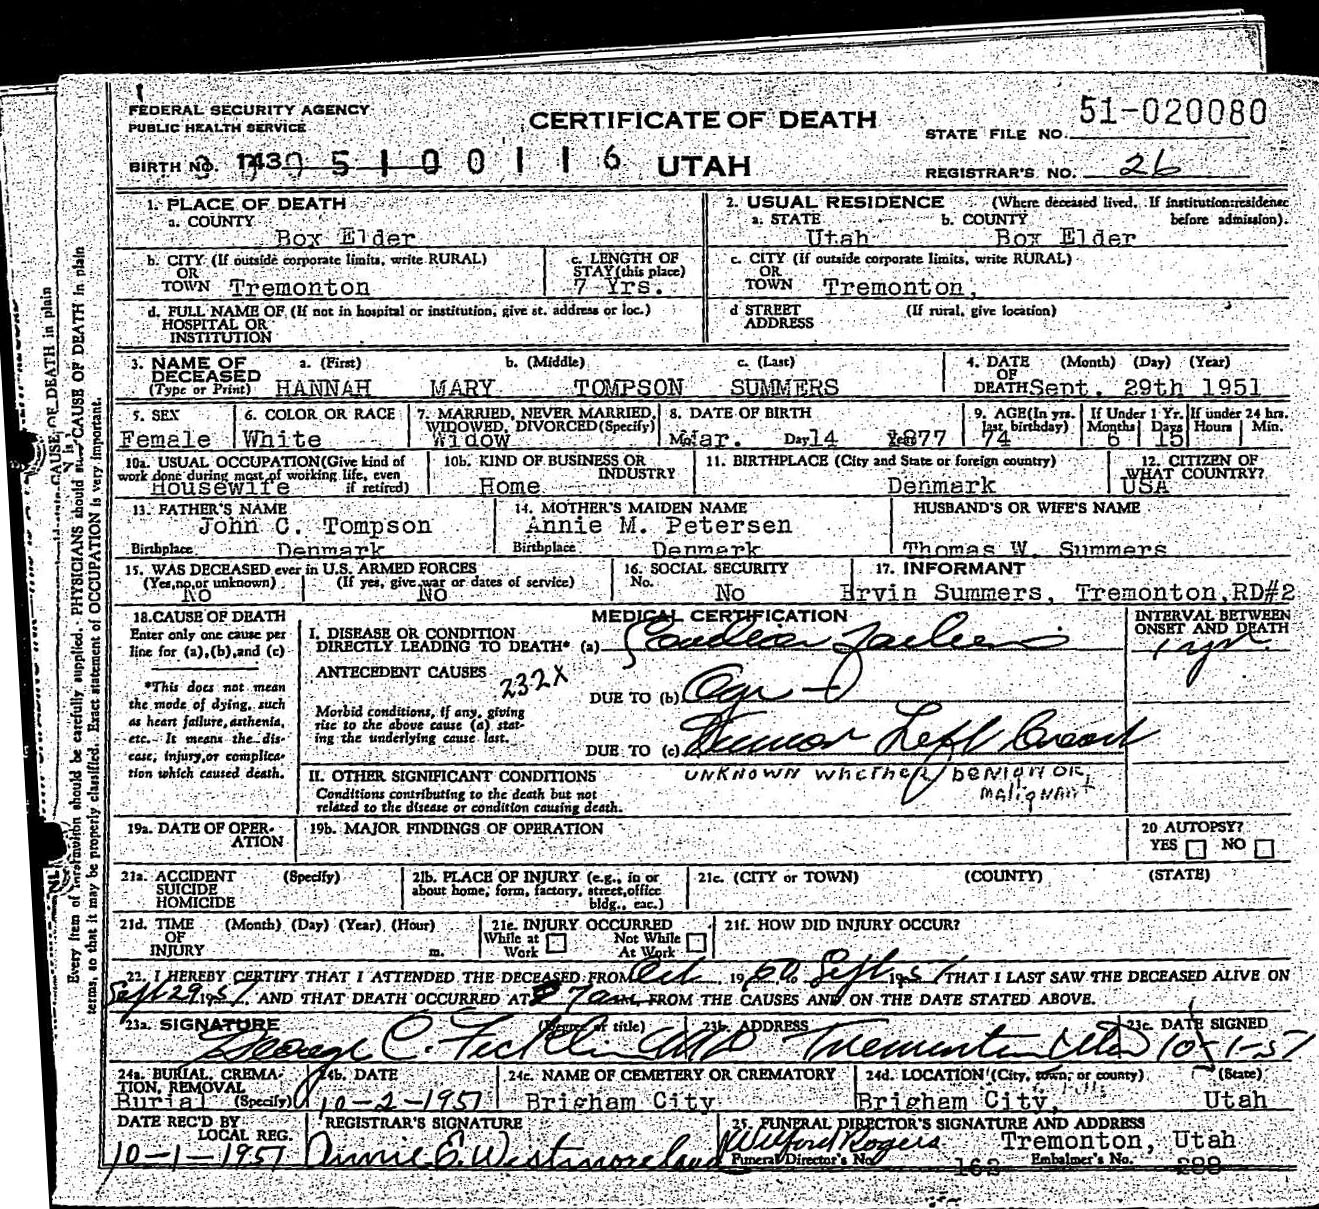 FEDERAL SECURITY AGENCY
PUBLIC HEALTH SERVICE
CERTIFICATE OF DEATH
STATE FILE NO. 51-020080
BIRTH NO. 5 1 0 0 1 1 6
UTAH
REGISTRAR'S NO. 26
1. PLACE OF DEATH
a. COUNTY
Box Elder
2. USUAL RESIDENCE (Where deceased lived. If institution: residence before admission).
a. STATE b. COUNTY
Utah Box Elder
b. CITY (If outside corporate limits, write RURAL)
OR
TOWN Tremonton
c. LENGTH OF
STAY (this place)
7 Yrs.
c. CITY (If outside corporate limits, write RURAL)
OR
TOWN Tremonton,
d. FULL NAME OF (If not in hospital or institution, give st. address or loc.)
HOSPITAL OR
INSTITUTION
d STREET (If rural, give location)
ADDRESS
3. NAME OF
DECEASED
(Type or Print)
a. (First) b. (Middle) c. (Last)
HANNAH MARY TOMPSON SUMMERS
4. DATE (Month) (Day) (Year)
OF
DEATH Sept. 29th 1951
5. SEX
Female
6. COLOR OR RACE
White
7. MARRIED, NEVER MARRIED,
WIDOWED, DIVORCED (Specify)
Widow
8. DATE OF BIRTH
Mar. Day 14 1877
9. AGE (In yrs.
last birthday)
74
If Under 1 Yr.
Months Days
6 15
If under 24 hrs.
Hours Min.
10a. USUAL OCCUPATION (Give kind of
work done during most of working life, even
if retired)
Housewife
10b. KIND OF BUSINESS OR
INDUSTRY
Home
11. BIRTHPLACE (City and State or foreign country)
Denmark
12. CITIZEN OF
WHAT COUNTRY?
USA
13. FATHER'S NAME
John C. Tompson
Birthplace Denmark
14. MOTHER'S MAIDEN NAME
Annie M. Petersen
Birthplace Denmark
HUSBAND'S OR WIFE'S NAME
Thomas W. Summers
15. WAS DECEASED ever in U.S. ARMED FORCES
(Yes, no, or unknown) (If yes, give war or dates of service)
No No
16. SOCIAL SECURITY
No.
No
17. INFORMANT
Ervin Summers, Tremonton, RD#2
18. CAUSE OF DEATH
Enter only one cause per
line for (a), (b), and (c)
*This does not mean
the mode of dying, such
as heart failure, asthenia,
etc. It means the dis-
ease, injury, or complica-
tion which caused death.
MEDICAL CERTIFICATION
I. DISEASE OR CONDITION
DIRECTLY LEADING TO DEATH* (a) Cardiac Failure
ANTECEDENT CAUSES
232X
Morbid conditions, if any, giving
rise to the above cause (a) stat-
ing the underlying cause last.
DUE TO (b) Age
DUE TO (c) Tumor Left Breast
INTERVAL BETWEEN
ONSET AND DEATH
1 yr
II. OTHER SIGNIFICANT CONDITIONS
Conditions contributing to the death but not
related to the disease or condition causing death.
UNKNOWN whether benign or
malignant
19a. DATE OF OPER-
ATION
19b. MAJOR FINDINGS OF OPERATION
20 AUTOPSY?
YES NO
21a. ACCIDENT (Specify)
SUICIDE
HOMICIDE
21b. PLACE OF INJURY (e.g., in or
about home, form, factory, street, office
bldg., eac.)
21c. (CITY or TOWN) (COUNTY) (STATE)
21d. TIME (Month) (Day) (Year) (Hour)
OF
INJURY m.
21e. INJURY OCCURRED
While at Work Not While At Work
21f. HOW DID INJURY OCCUR?
22. I HEREBY CERTIFY THAT I ATTENDED THE DECEASED FROM Oct, 1950 to Sept 1951 THAT I LAST SAW THE DECEASED ALIVE ON
Sept 29 1951 AND THAT DEATH OCCURRED AT 7 am, FROM THE CAUSES AND ON THE DATE STATED ABOVE.
23a. SIGNATURE (Degree or title)
George C. Ficklin MD
23b. ADDRESS
Tremonton Utah
23c. DATE SIGNED
10-1-51
24a. BURIAL, CREMA-
TION, REMOVAL
(Specify)
Burial
24b. DATE
10-2-1951
24c. NAME OF CEMETERY OR CREMATORY
Brigham City
24d. LOCATION (City, town, or county) (State)
Brigham City, Utah
DATE REC'D BY
LOCAL REG.
10-1-1951
REGISTRAR'S SIGNATURE
Annie E. Westmoreland
25. FUNERAL DIRECTOR'S SIGNATURE AND ADDRESS
Wilford Rogers Tremonton, Utah
Funeral Director's No. 162 Embalmer's No. 288
Every item of information should be carefully supplied. PHYSICIANS should state CAUSE OF DEATH in plain
terms, so that it may be properly classified. Exact statement of OCCUPATION is very important.
CAUSE OF DEATH in plain